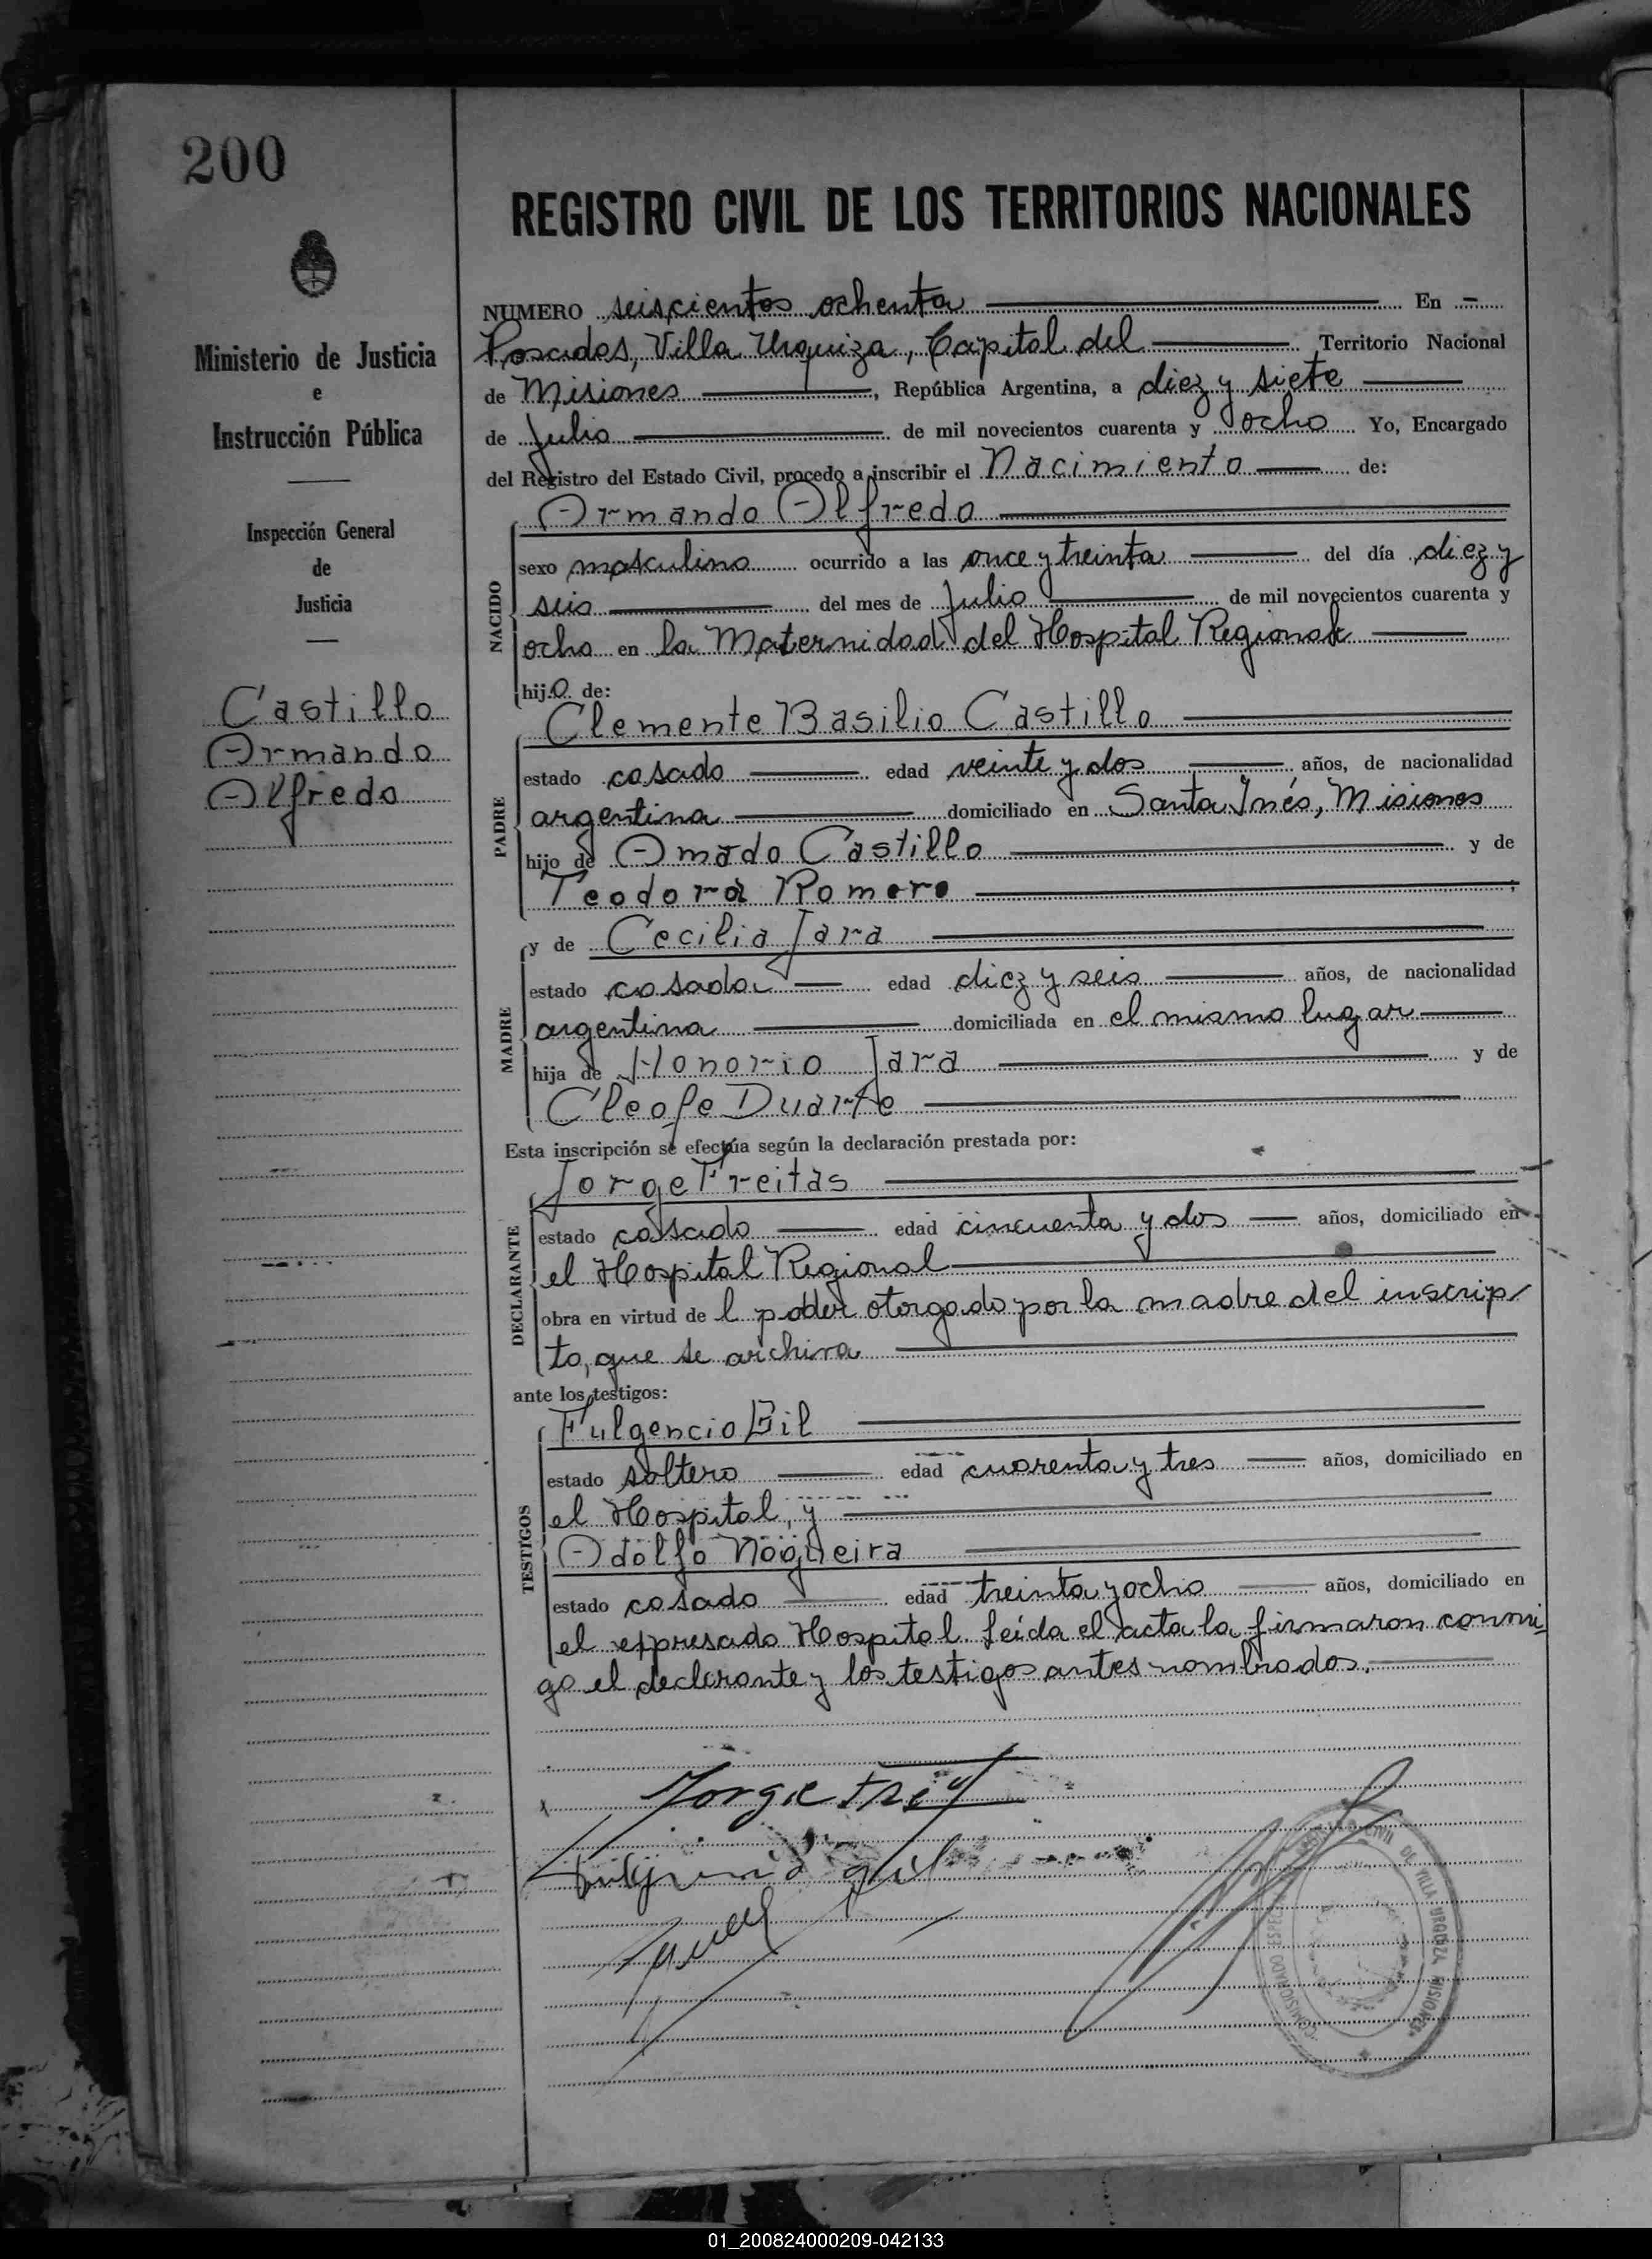 200
REGISTRO CIVIL DE LOS TERRITORIOS NACIONALES
Ministerio de Justicia
e
Instrucción Pública
Inspección General
de
Justicia
Castillo
Armando
Alfredo
NUMERO seiscientos ochenta En
Posadas, Villa Urquiza, Capital del Territorio Nacional
de Misiones, República Argentina, a diez y siete
de Julio de mil novecientos cuarenta y ocho Yo, Encargado
del Registro del Estado Civil, procedo a inscribir el Nacimiento de:
Armando Alfredo
NACIDO
sexo masculino ocurrido a las once y treinta del día diez y
seis del mes de Julio de mil novecientos cuarenta y
ocho en la Maternidad del Hospital Regional
hijo de:
Clemente Basilio Castillo
PADRE
estado casado edad veinte y dos años, de nacionalidad
argentina domiciliado en Santa Inés, Misiones
hijo de Amado Castillo y de
Teodora Romero ;
y de Cecilia Jara
MADRE
estado casada edad diez y seis años, de nacionalidad
argentina domiciliada en el mismo lugar
hija de Honorio Jara y de
Cleofe Duarte
Esta inscripción se efectúa según la declaración prestada por:
Jorge Freitas
DECLARANTE
estado casado edad cincuenta y dos años, domiciliado en
el Hospital Regional
obra en virtud de l poder otorgado por la madre del inscrip
to, que se archiva
ante los testigos:
Fulgencio Gil
TESTIGOS
estado soltero edad cuarenta y tres años, domiciliado en
el Hospital, y
Adolfo Nogueira
estado casado edad treinta y ocho años, domiciliado en
el expresado Hospital. Leída el acta la firmaron conmi-
go el declarante y los testigos antes nombrados.
Jorge
Gil
CIVIL DE VILLA URQUIZA MISIONES
COMISIONADO
01_200824000209-042133